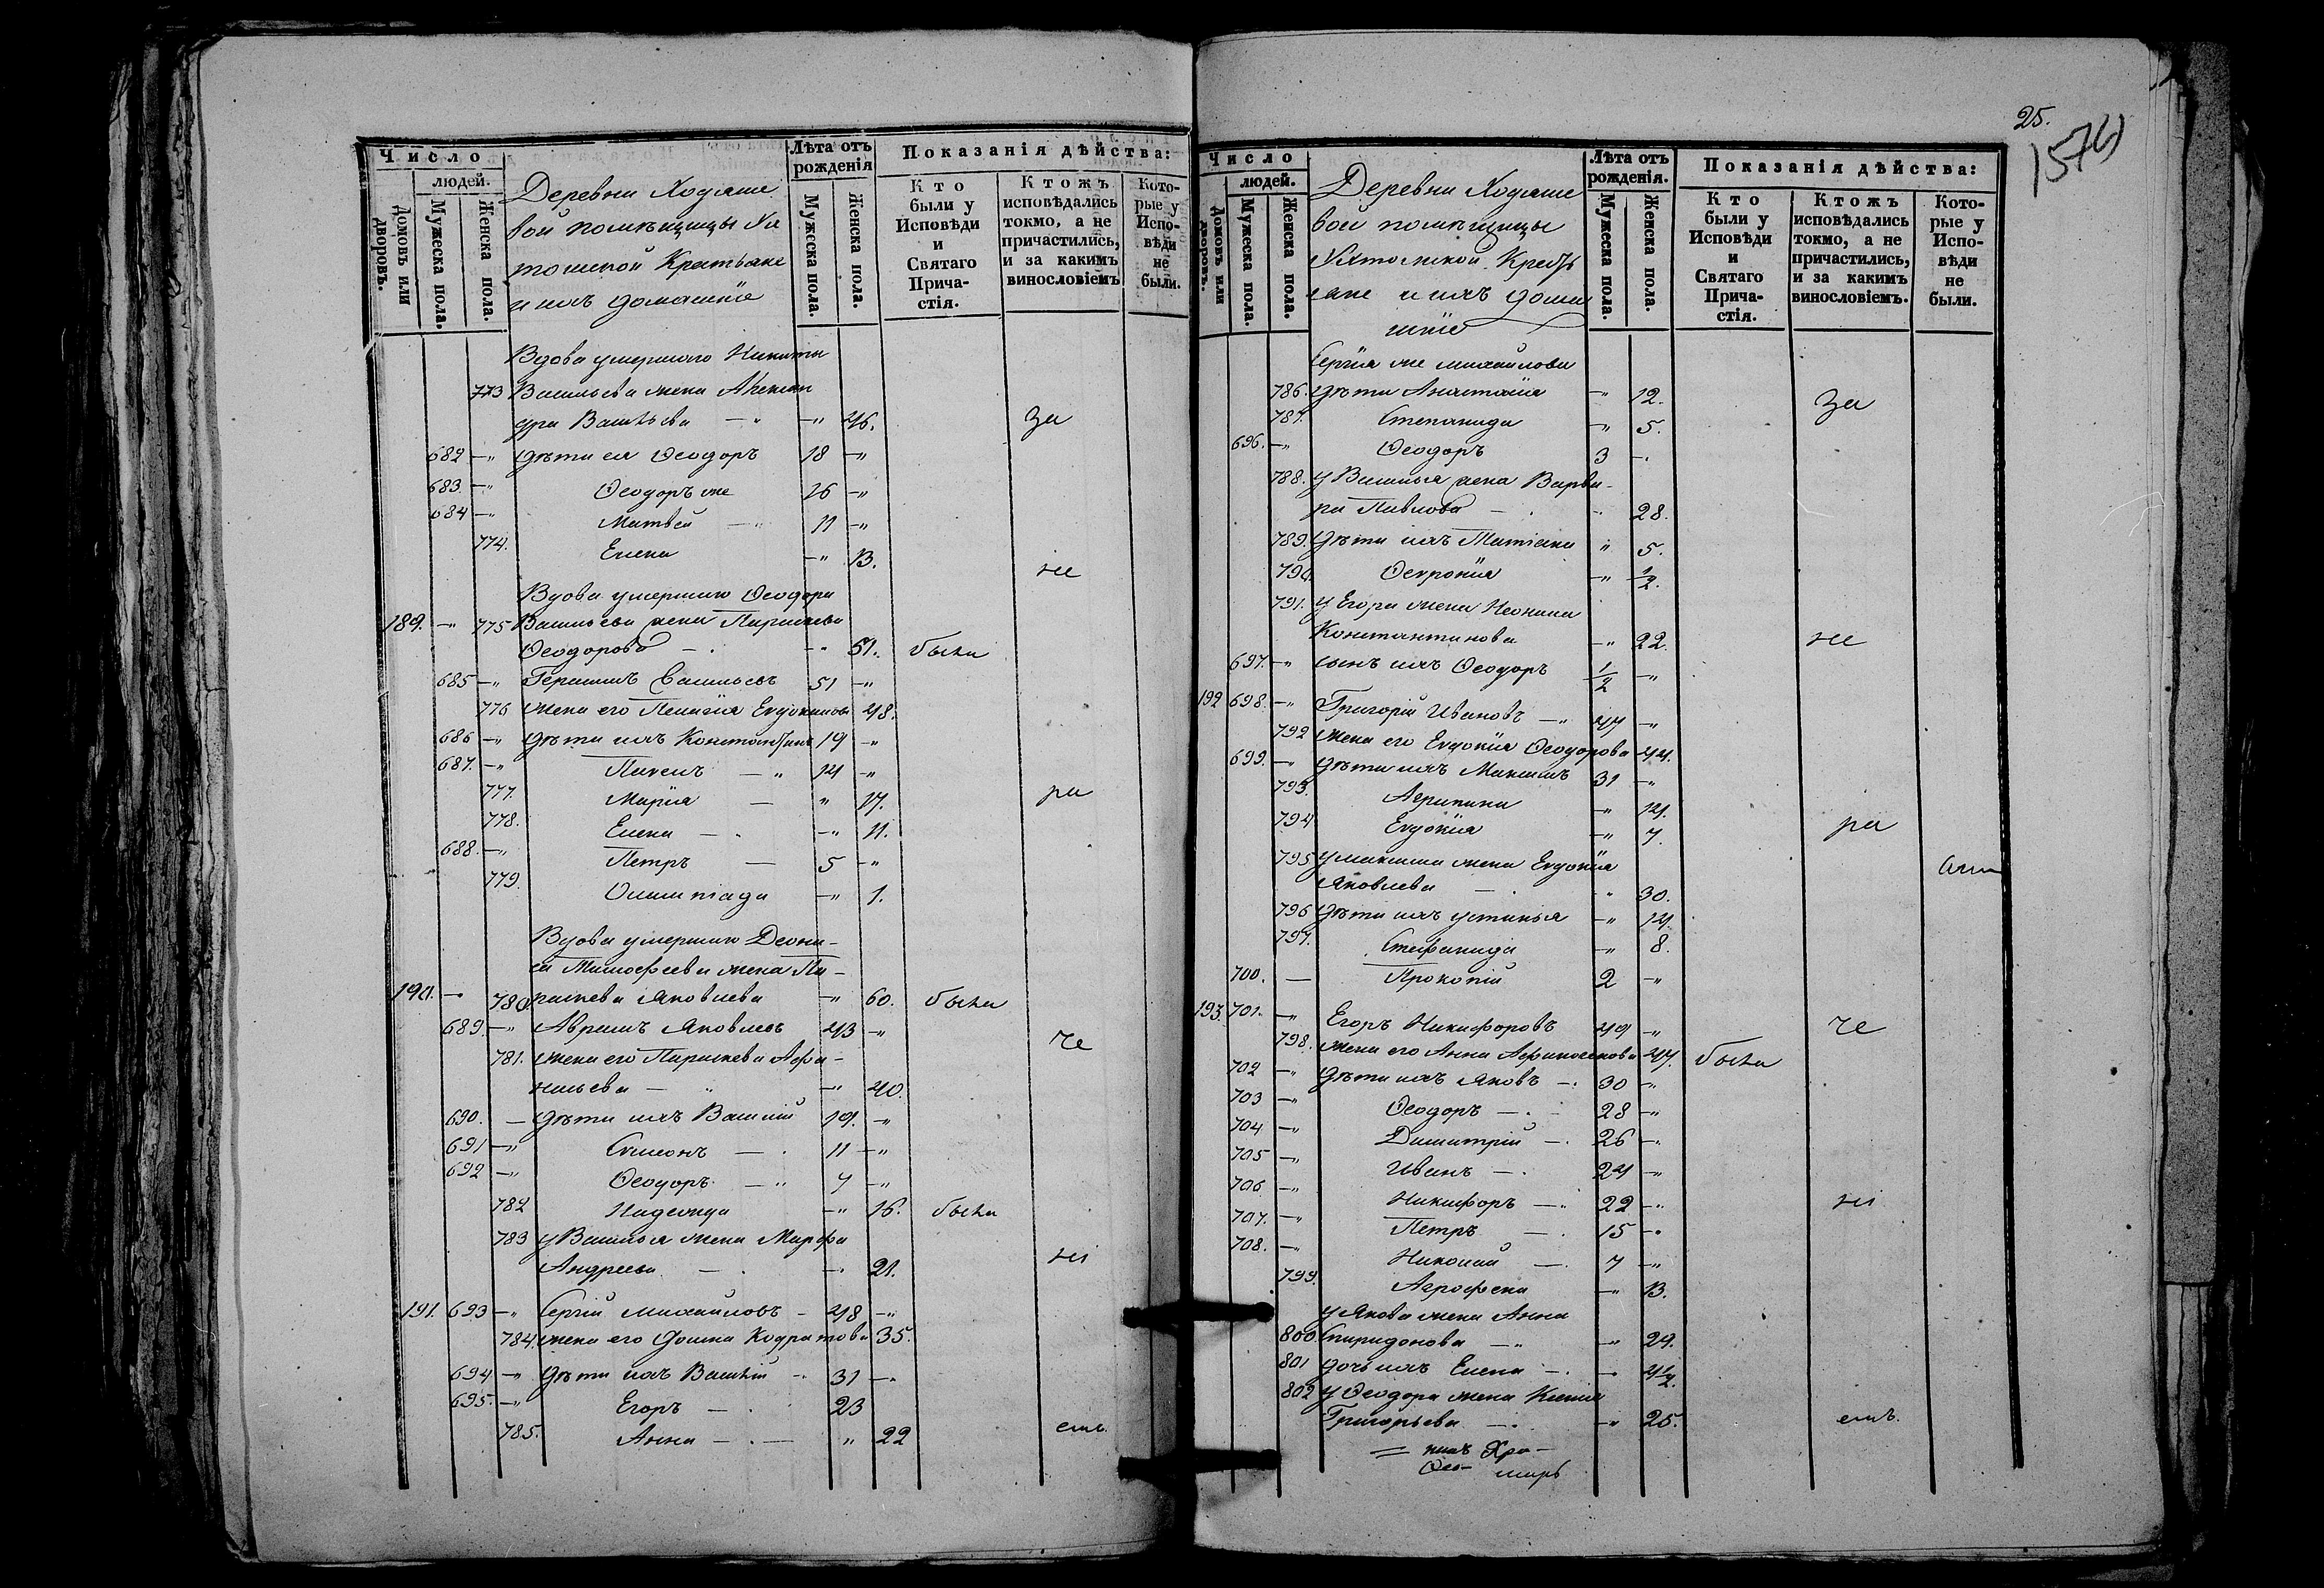 Число
людей.
Домовъ или дворовъ.
Мужеска пола.
Женска пола.
Деревни Ходяше
вой помѣщицы Ух
томской Крестьяне
и ихъ домашніе
Лѣта отъ рожденія
Мужеска пола.
Женска пола.
Показанія дѣйства:
Кто были у Исповѣди и Святаго Причастія.
Ктожъ исповѣдались токмо, а не причастились, и за какимъ винословіемъ
Которые у Исповѣди не были.
Вдова умершаго Никиты
773 Васильева жена Алексан
дра Васильева — „ —„ 46. за
682 —„ дѣти ея Ѳеодоръ 18 —„
683. —„ Ѳеодоръ же 16 —„
684 —„ Матвей — „ 11 —„
774. Елена —„ 13.
не
Вдова умершаго Ѳеодора
189. —„ 775 Васильева жена Параскева
Ѳеодорова — . —„ 51. была
685 —„ Герасимъ Васильевъ 51 —„
776 жена его Пелагія Евдокимова 48.
686 —„ дѣти ихъ Константинъ 19 —„
687. —„ Павелъ — „ 14 —„
777. Марія — „ 17. ра
778. Елена — . —„ 11.
688. —„ Петръ — 5 —„
779. Олимпіада —„ 1.
Вдова умершаго Діони-
сія Тимофеева жена Па-
190. —„ 780 раскева Яковлева —„ 60. была
689. —„ Аврамъ Яковлевъ 43 —„
че
781. жена его Параскева Афа-
насьева — „ —„ 40.
690. — дѣти ихъ Василій 19. —„
691 —„ Симеонъ — . 11 —„
692 —„ Ѳеодоръ — „ 7 —„
782 Надежда —„ 16. была
783 у Василья жена Марфа
Андреева — . —„ 21. ні
191. 693 —„ Сергій Михайловъ - 48 —„
784. жена его Домна Кодратова 35.
694 —„ дѣти ихъ Василій - 31 —„
695. —„ Егоръ — . 23
785. Анна — . — „ 22 емъ.
25.
Число
людей.
Домовъ или дворовъ.
Мужеска пола.
Женска пола.
Деревни Ходяше
вой помѣщицы
Ухтомской Кресть
яне и ихъ дома
шніе
Лѣта отъ рожденія.
Мужеска пола.
Женска пола.
Показанія дѣйства:
Кто были у Исповѣди и Святаго Причастія.
Ктожъ исповѣдались токмо, а не причастились, и за какимъ винословіемъ.
Которые у Исповѣди не были.
Сергія же Михайлова
786. дѣти Анастасія —„ 12. за
787. Степанида —„ 5.
696. —„ Ѳеодоръ 3 —.
788. у Василья жена Варва-
ра Павлова — . „ 28.
789. дѣти ихъ Татіана „ 5.
790. Февронія —„ 1/2.
791. у Егора жена Неонила
Константинова —„ 22. не
697. —„ сынъ ихъ Ѳеодоръ 1/2 —„
192 698. —„ Григорій Ивановъ —„ 47 —„
792 жена его Евдокія Ѳеодорова 44.
699. —„ дѣти ихъ Максимъ 31 —„
793. Агрипина —„ 14.
794 Евдокія —„ 7. ра
795 у Максима жена Евдокія
Яковлева — . „ 30.
796 дѣти ихъ Устинья —„ 14.
797. Степанида —„ 8.
700. — Прокопій 2 —„
193. 701. —„ Егоръ Никифоровъ 49 —„ че
798. жена его Анна 47. была
702 —„ дѣти ихъ Яковъ —. 30 —„
703 —„ Ѳеодоръ — . 28 —„
704 —„ Димитрій —. 26 —„
705 —„ Иванъ —. 24 —„
706 —„ Никифоръ —„ 22 —„ ні
707. —„ Петръ — . 15 —„
708. —„ Николай —. 7 —„
799. Агрофена —„ 13.
у Якова жена Анна
800 Спиридонова —„ —„ 29.
801 дочь ихъ Елена —. —
802 у Ѳеодора жена Ксенія
Григорьева —. —„ 25. емъ.